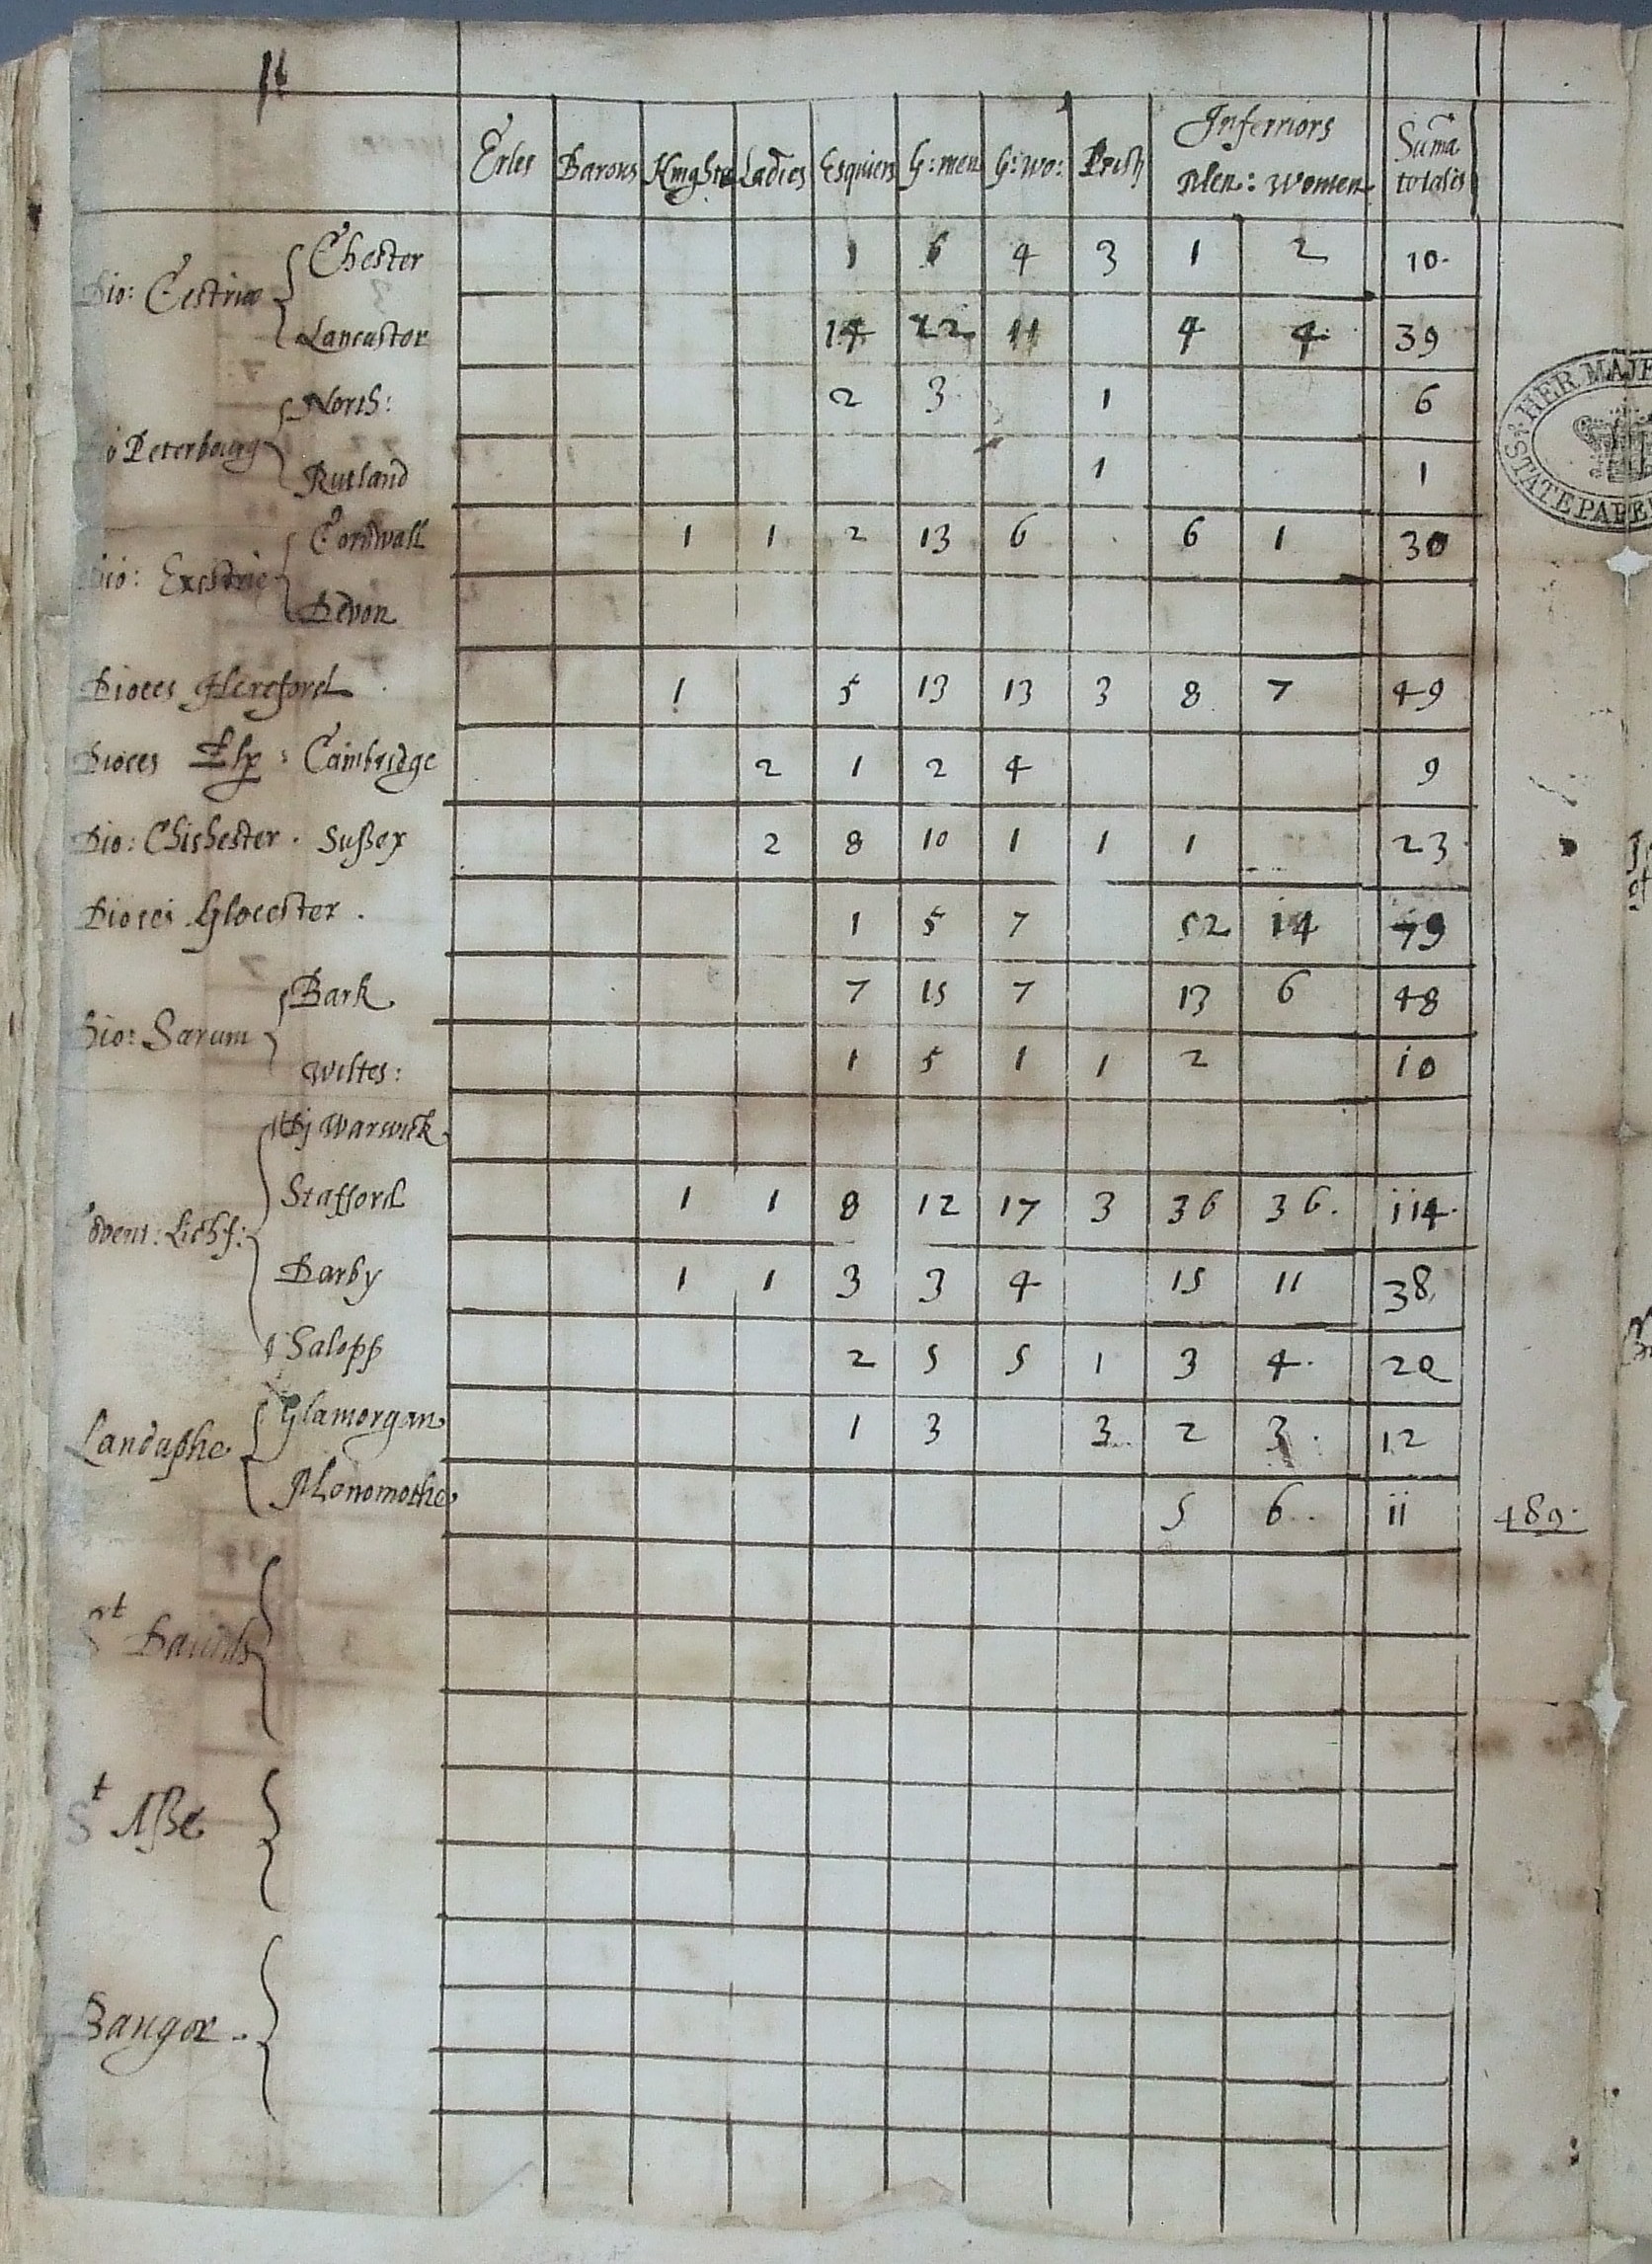 Erles Barons Knights Ladies Esquiers G: men G: wo: Prists Inferriors Men: Women Suma totalis
Dio: Cestriae Chester 1 6 4 3 1 2 10.
Lancastor 14 22 11 4 4 39
HER MAJE
STATE PAPE
Peterbourg North: 2 3 1 6
Rutland 1 1
Dio: Exestrie Cornwall 1 1 2 13 6 6 1 30
Devon
Dioces Hereford 1 5 13 13 3 8 7 49
Dioces Ely: Cambridge 2 1 2 4 9
Dio: Chichester. Sußex 2 8 10 1 1 1 23
Dioces Glocester. 1 5 7 52 14 79
Dio: Sarum Bark 7 15 7 13 6 48
Wiltes: 1 5 1 1 2 10
Covent: Lichf: Warwick
Stafford 1 1 8 12 17 3 36 36. 114.
Darby 1 1 3 3 4 15 11 38
Salopp 2 5 5 1 3 4. 20
Landaphe Glamorgan 1 3 3 2 3. 12
Monomothe 5 6.. 11 489.
St Davids
St Aße
Bangor.